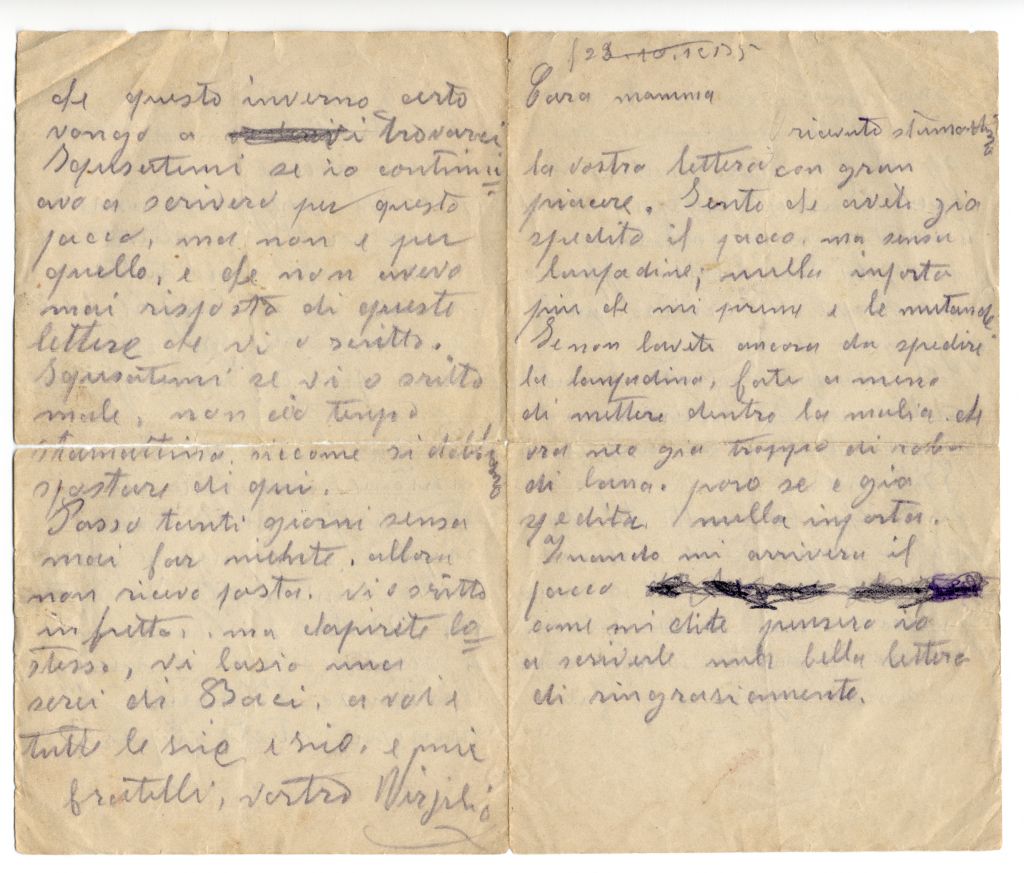 Cara mamma
ricevuto stamattina
la vostra lettera con gran
piacere. Sento che aveti gia
spedito il pacco, ma sensa
lanpadine, nulla inporta
piu che mi preme e le mutande
Se non laveti ancora da spedire
la lanpadina, fate a meno
di mettere dentro la malia che
ora neo gia troppo di roba
di lana. pero se e gia
spedita. nulla inporta.
Quando mi arrivera il
pacco
come mi dite pensero io
a scriverle una bella lettera
di ringrasiamento.
che questo inverno certo
vengo a trovarvi
Squsatemi se io continu
avo a scrivere per questo
pacco, ma non e per
quello, e che non avevo
mai risposta di queste
lettere che vi o scritto.
Squsatemi se vi o scritto
male, non cio tenpo
stamattina siccome si dobbiamo
spostare di qui.
Passo tanti giorni sensa
mai far niente, allora
non ricevo posta. vi o scritto
in fretta, ma capirete lo
stesso, vi lascio una
serei di Baci, a voi e
tutte le sie e sio, e miei
fratelli, vostro Virgilio